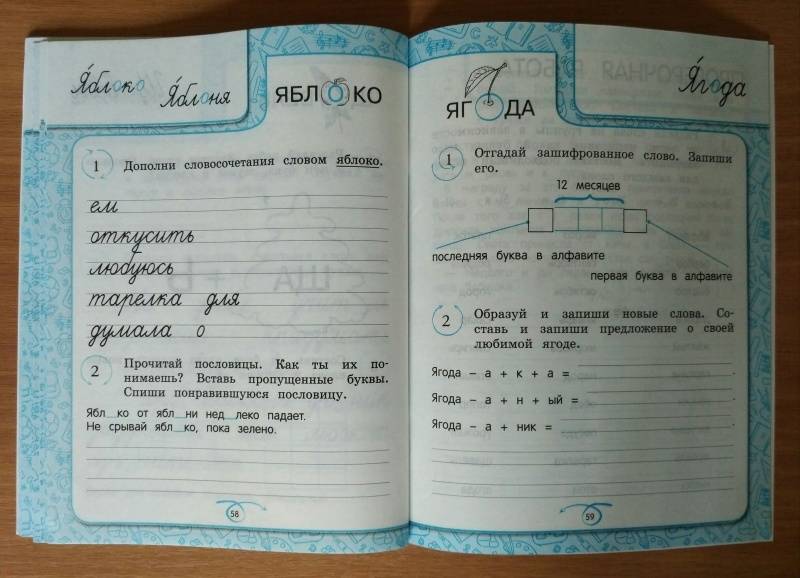 Яблоко
Яблоня
ЯБЛОКО
1 Дополни словосочетания словом яблоко.
ем
откусить
любуюсь
тарелка для
думала о
2 Прочитай пословицы. Как ты их по-
нимаешь? Вставь пропущенные буквы.
Спиши понравившуюся пословицу.
Ябл_ко от ябл_ни нед_леко падает.
Не срывай ябл_ко, пока зелено.
58
ЯГОДА
Ягода
1 Отгадай зашифрованное слово. Запиши
его.
12 месяцев
последняя буква в алфавите
первая буква в алфавите
2 Образуй и запиши новые слова. Со-
ставь и запиши предложение о своей
любимой ягоде.
Ягода – а + к + а = .
Ягода – а + н + ый = .
Ягода – а + ник = .
59